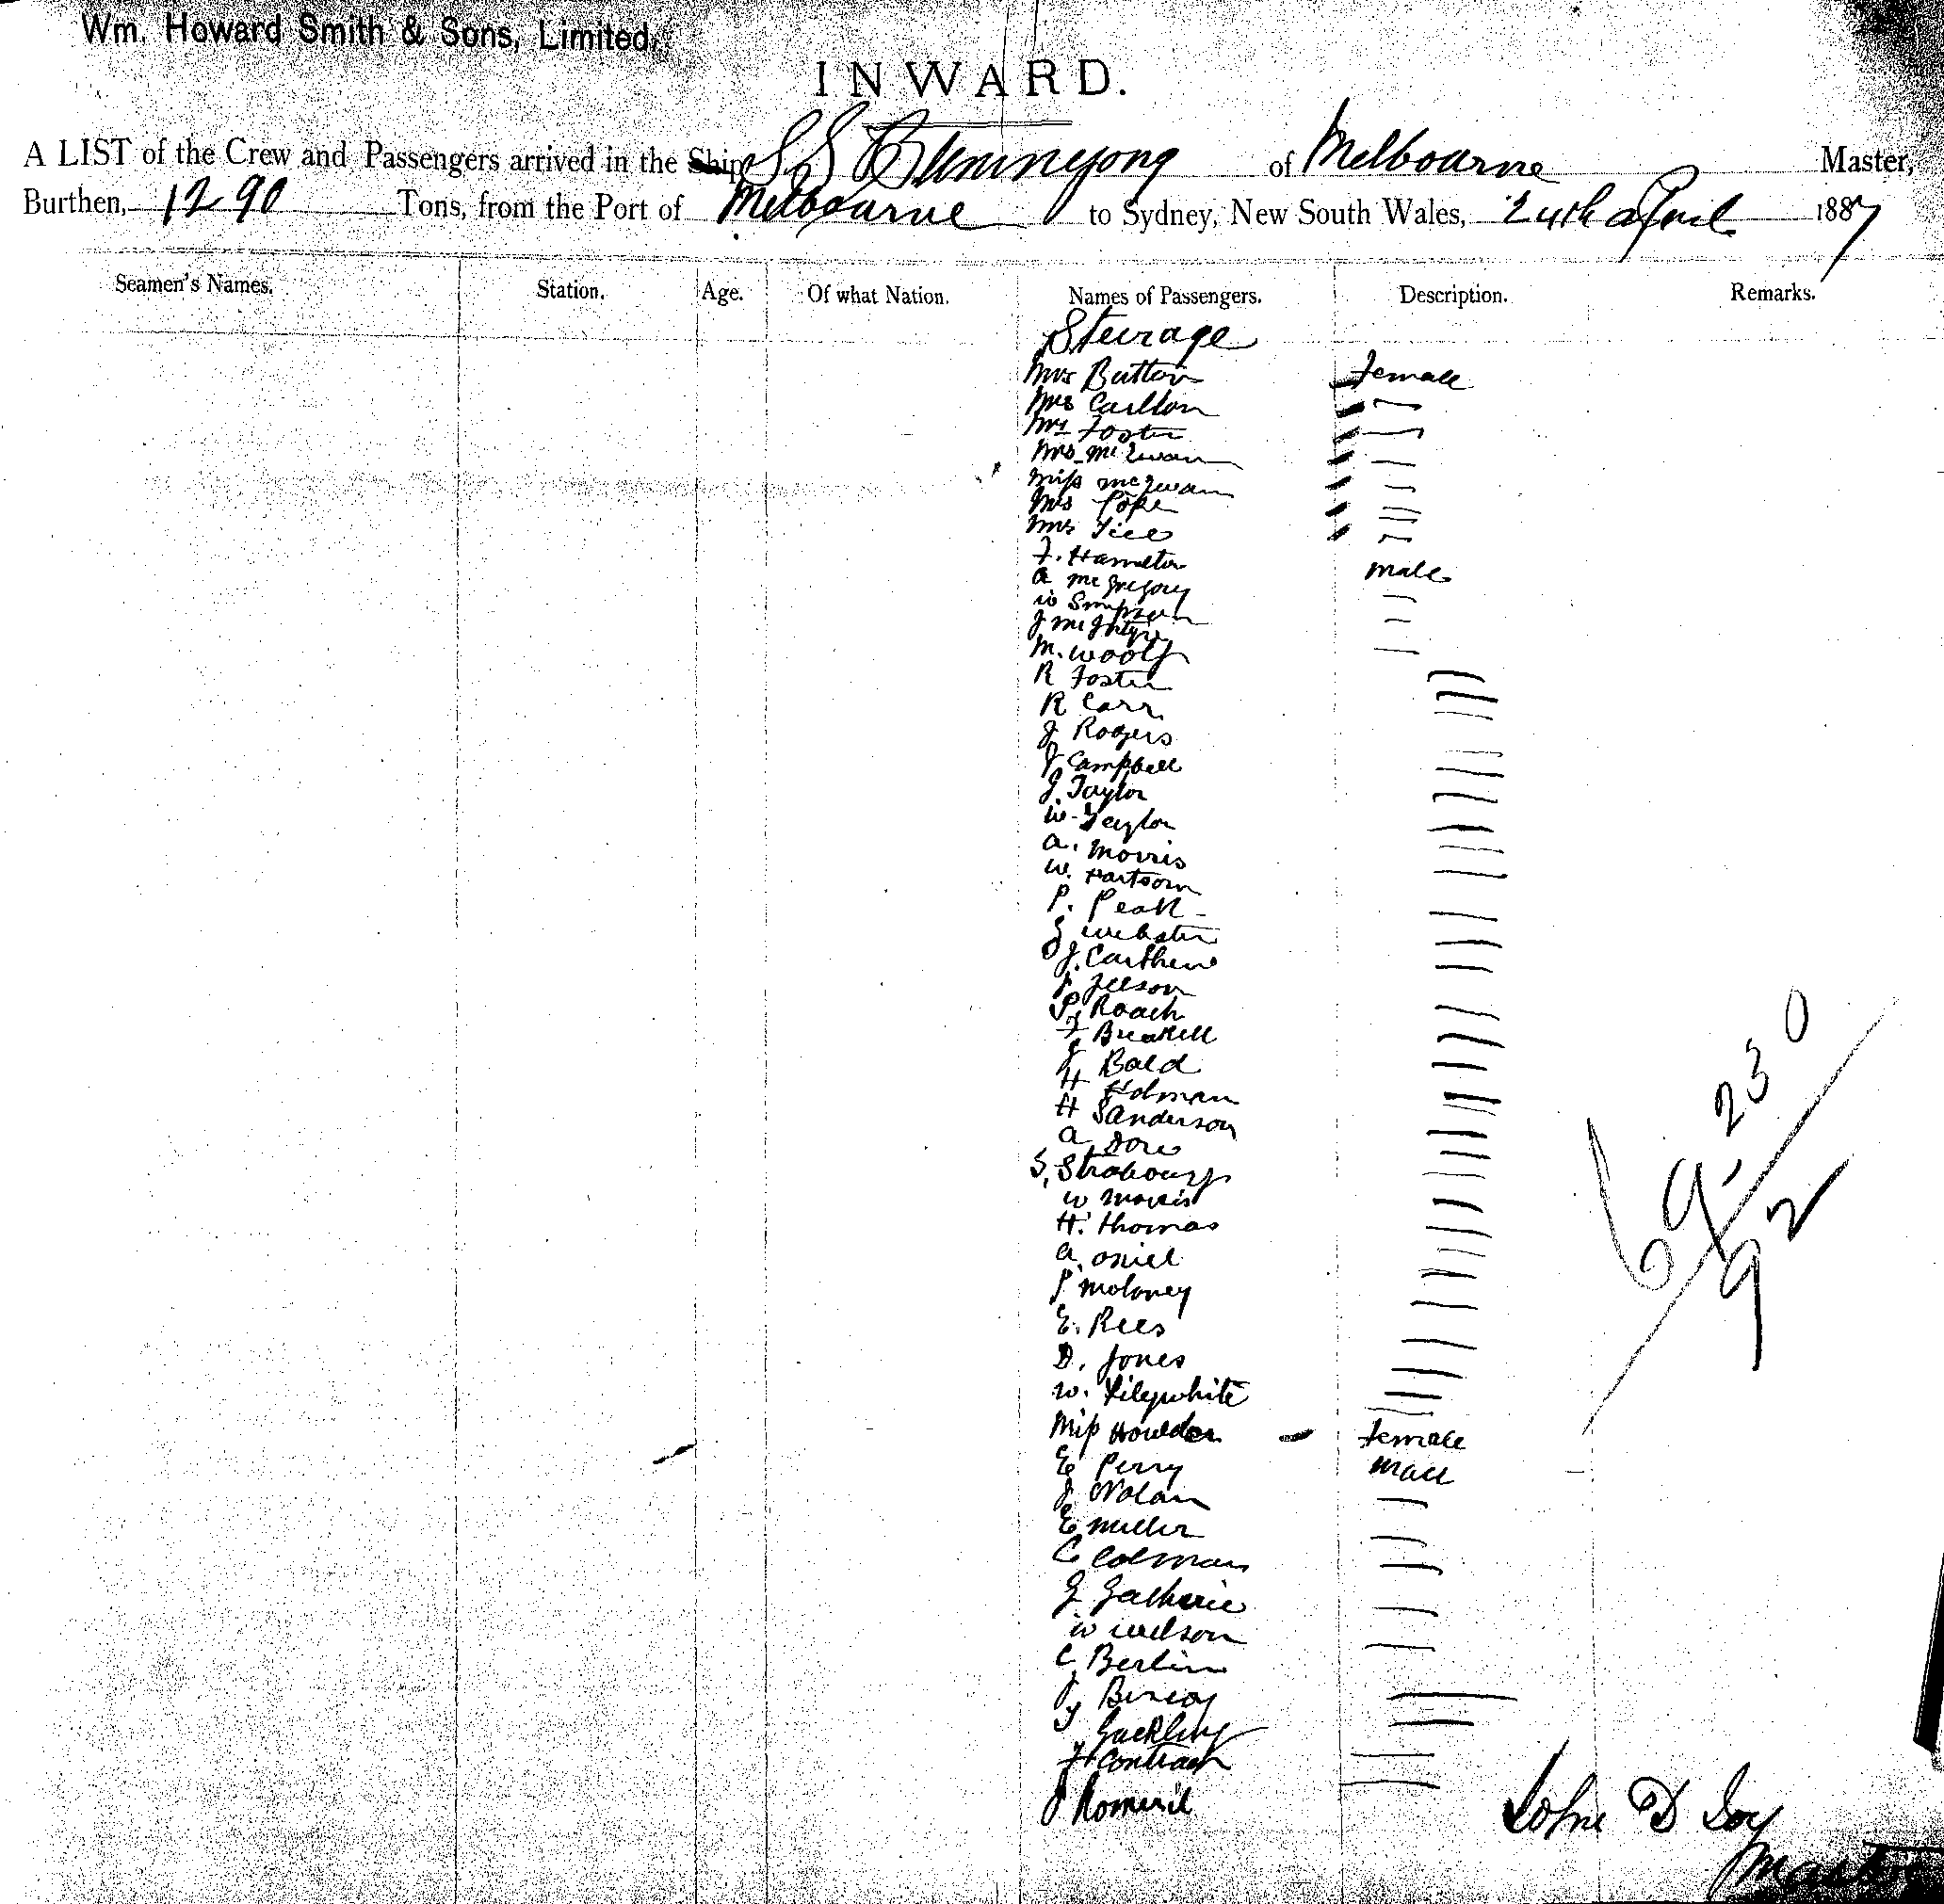 Wm. Howard Smith & Sons, Limited.
INWARD.
A LIST of the Crew and Passengers arrived in the Ship S.S Buninyong of Melbourne Master,
Burthen, 1290 Tons, from the Port of Melbourne to Sydney, New South Wales, 24th April 1887
Seamen's Names. Station. Age. Of what Nation. Names of Passengers. Description. Remarks.
Steerage
Mrs Button female
Mrs Carlton
Mrs Foster
Mrs McEwan
Miss McEwan
Mrs Pope
Mrs Tice
F. Hamilton male
A McGregory
W Simpson
J McIntyre
M. Woolf
R Foster
R Carr
J Rogers
J Campbell
J. Taylor
W. Taylor
A. Morris
W. Hartson
P. Peak
J Webster
J. Carthew
J Jelson
P Roach
F Breakell
J Bald
H Holman
H Sanderson
A Dore
S. Strabourg
W Morris
H. Thomas
A. Oniel
P Moloney
E. Rees
D. Jones
W. Lilywhite
Miss Houlder female
E Perry male
J Nolan
E Miller
C Colman
J
W Wilson
C Berlin
J
J
H Contrash
J Romeril
69. 230
92
John D Loy
Master